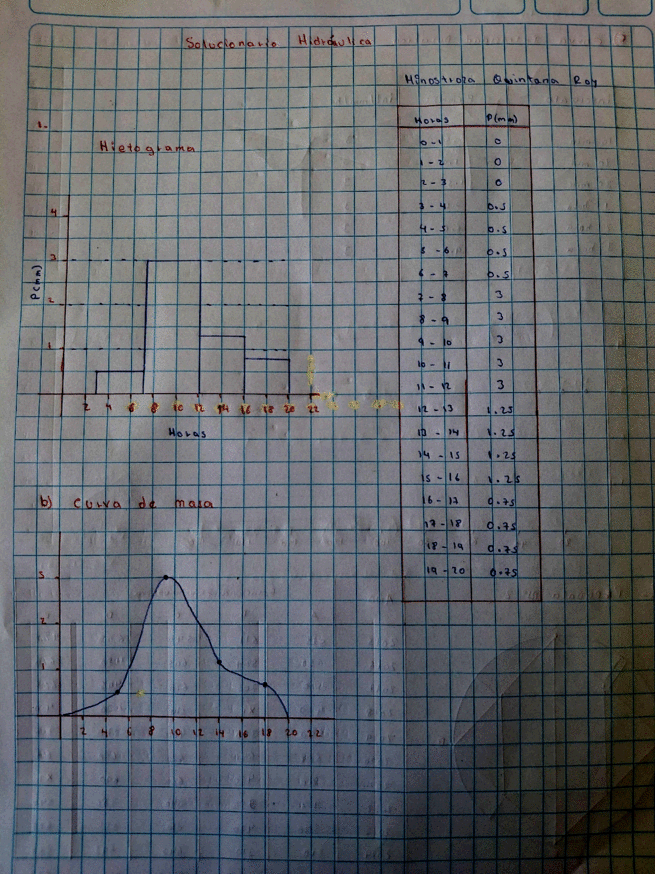 Solucionario Hidráulica
Hinostroza Quintana Roy
1.-
Hietograma
4
3
2
1
P(mm)
2 4 6 8 10 12 14 16 18 20 22
Horas
Horas P(mm)
0-1 0
1-2 0
2-3 0
3-4 0.5
4-5 0.5
5-6 0.5
6-7 0.5
7-8 3
8-9 3
9-10 3
10-11 3
11-12 3
12-13 1.25
13-14 1.25
14-15 1.25
15-16 1.25
16-17 0.75
17-18 0.75
18-19 0.75
19-20 0.75
b) curva de masa
3
2
1
2 4 6 8 10 12 14 16 18 20 22